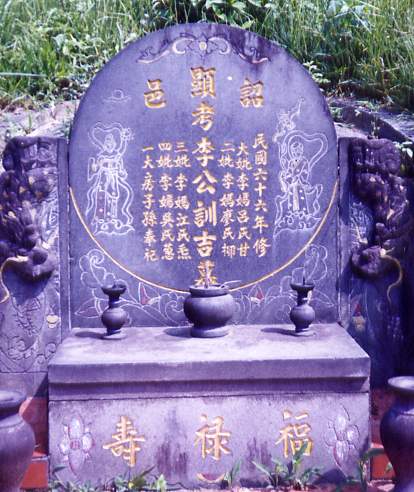 詔邑
民國六十六年修
大妣李媽呂氏甘
二妣李媽氏柳
顯考李公訓吉墓
三妣李媽江氏
四妣李媽吳氏
一大房子孫奉祀
福祿壽